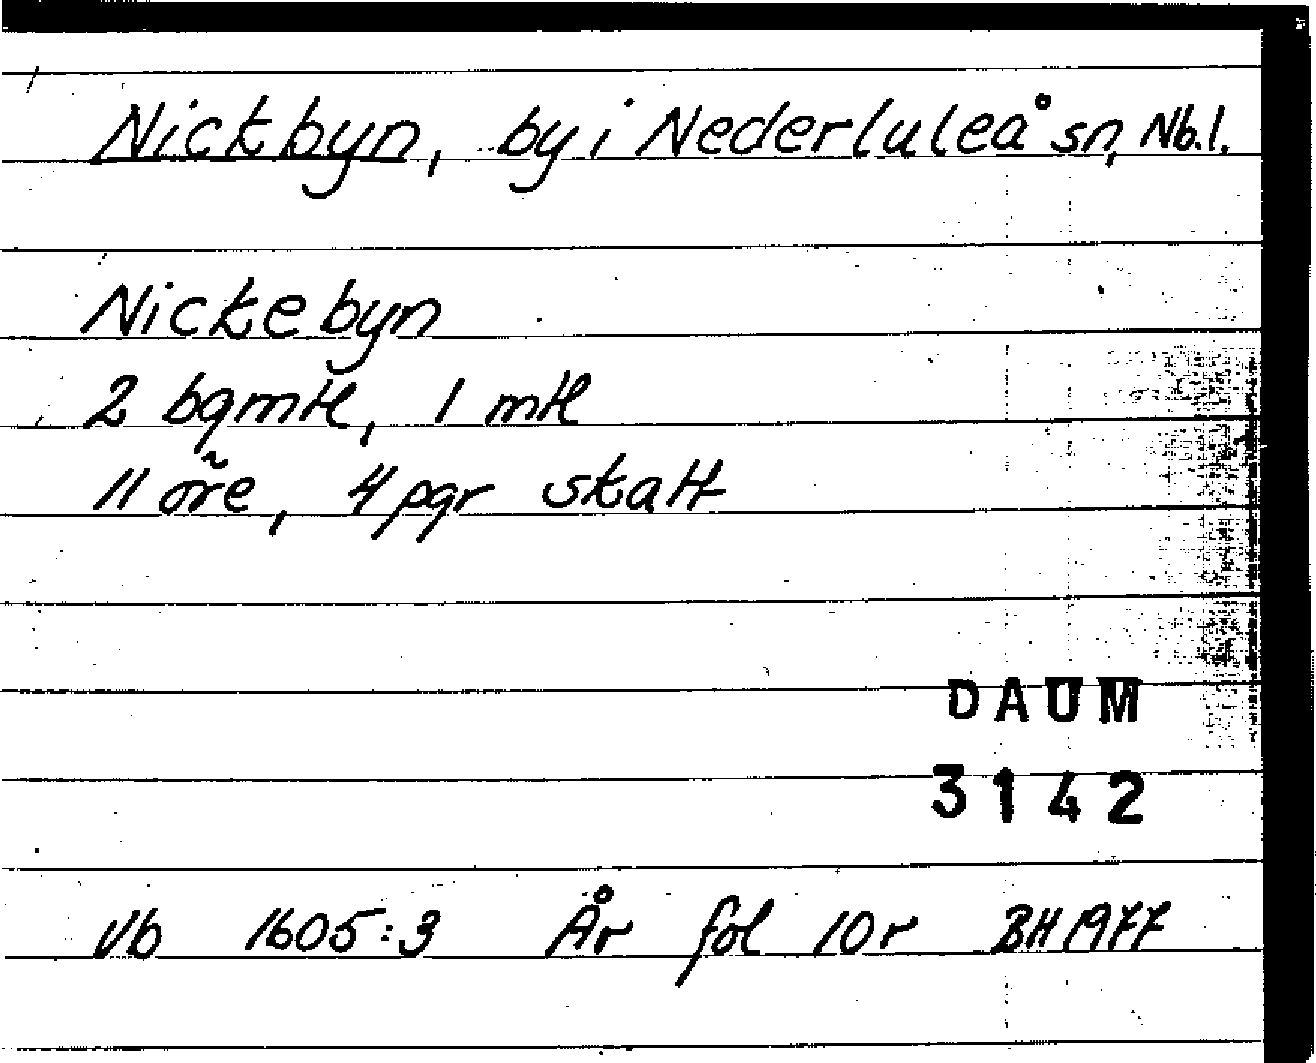 Nickbyn, by i Nederluleå sn, Nb.l.
Nickebyn
2 bqmtl, 1 mtl
11 öre, 4 pgr skatt
DAUM
3142
Vb 1605:3 År fol 10r BH 1977